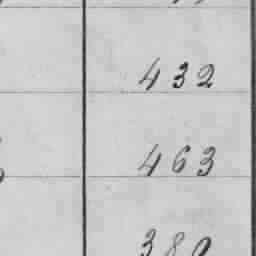 432
463
380